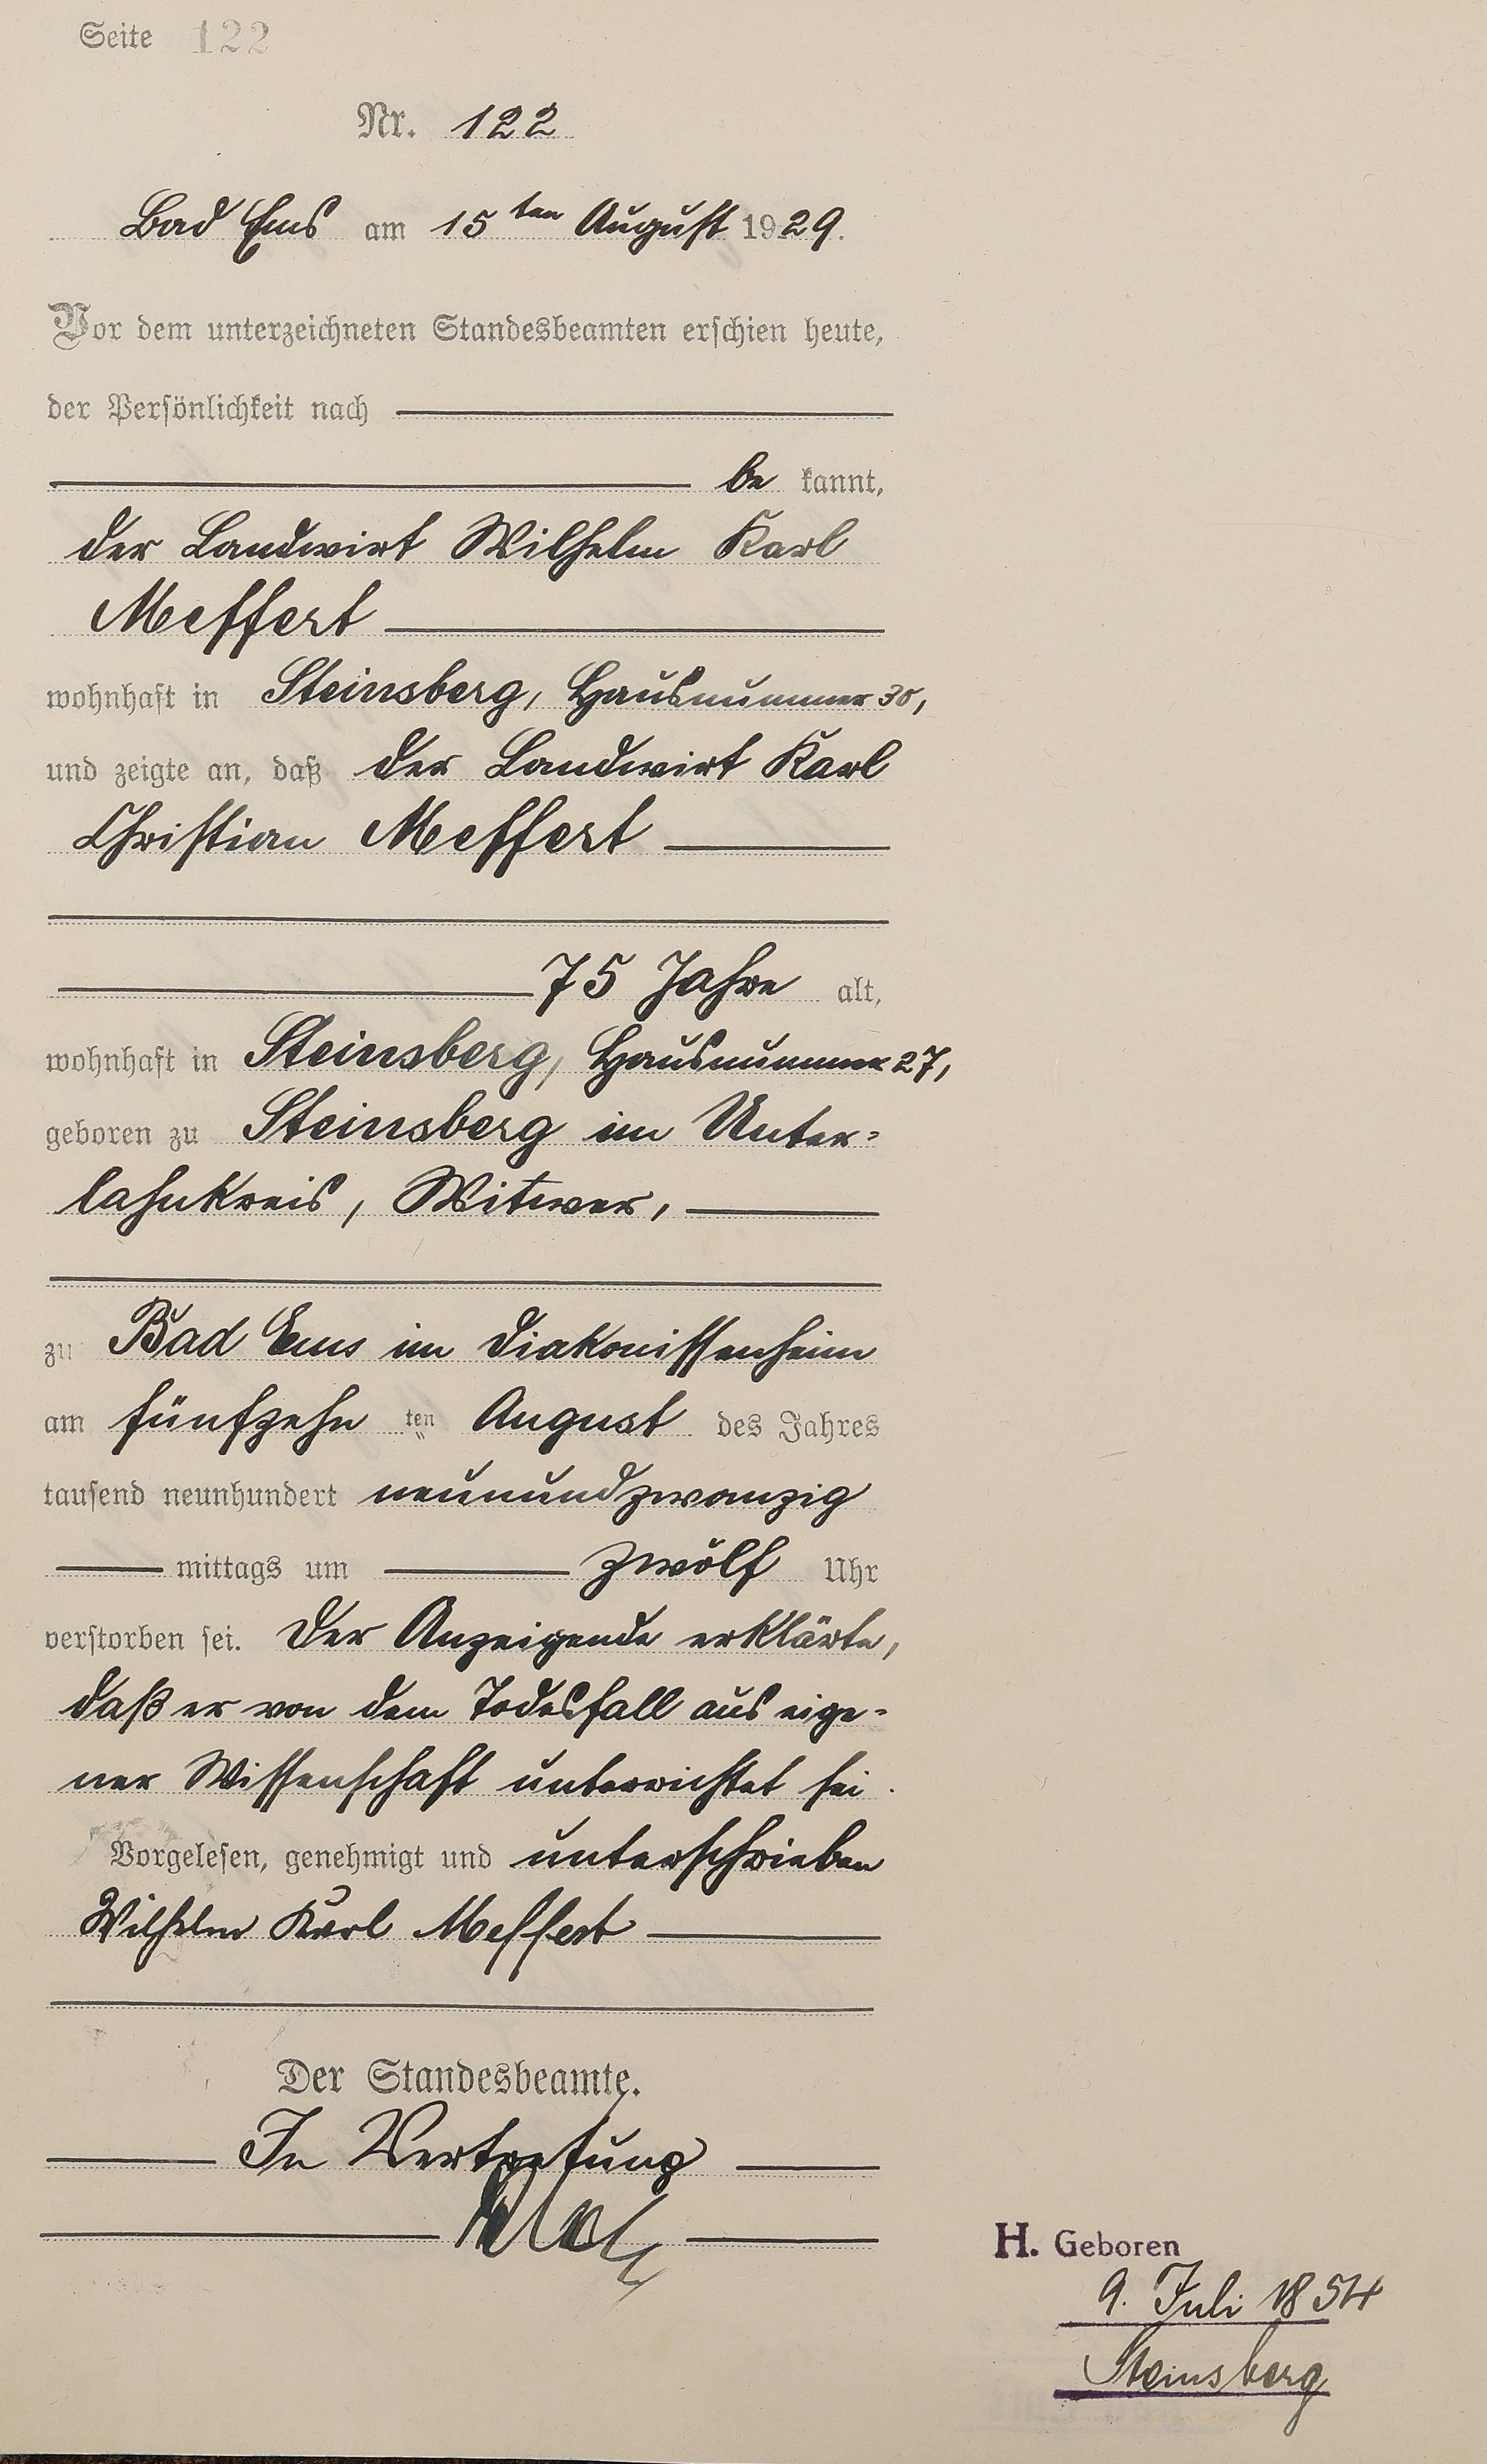 Seite 122
Nr. 122
Bad Ems am 15ten August 1929.
Vor dem unterzeichneten Standesbeamten erschien heute,
der Persönlichkeit nach
be kannt,
der Landwirt Wilhelm Karl
Meffert
wohnhaft in Steinsberg, Hausnummer 30,
und zeigte an, daß der Landwirt Karl
Christian Meffert
75 Jahre alt,
wohnhaft in Steinsberg, Hausnummer 27,
geboren zu Steinsberg im Unter=
lahnkreis, Witwer,
zu Bad Ems im Diakonissenheim
am fünfzehn ten August des Jahres
tausend neunhundert neunundzwanzig
mittags um zwölf Uhr
verstorben sei. Der Anzeigende erklärte,
daß er von dem Todesfall aus eige=
ner Wissenschaft unterrichtet sei.
Vorgelesen, genehmigt und unterschrieben
Wilhelm Karl Meffert
Der Standesbeamte.
In Vertretung
H. Geboren
9. Juli 1854
Steinsberg